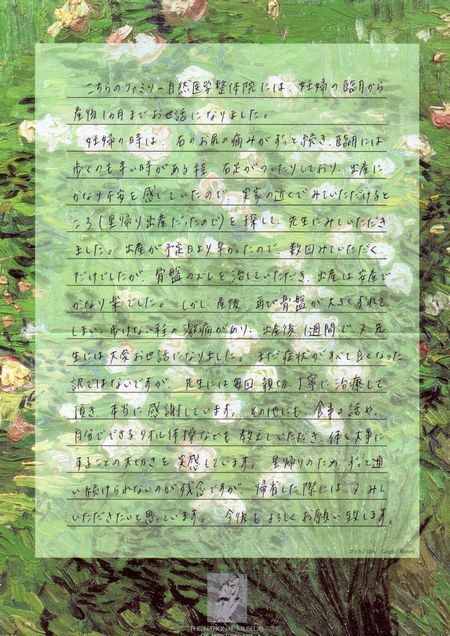 こちらのファミリー自然医学整体院には、妊婦の臨月から
産後1ヵ月までお世話になりました。
妊婦の時は、右のお尻の痛みがずっと続き、臨月には
歩くのも辛い時がある程、右足がつったりしており、出産に
かなり不安を感じていたので、実家の近くでみていただけると
ころ(里帰り出産だったので)を探して、先生にみていただき
ました。出産が予定日より早かったので、数回みていただく
だけでしたが、骨盤のズレを治していただき、出産は安産で
かなり楽でした。しかし、産後、再び骨盤が大きくずれて
しまい、歩けない程の激痛があり、出産後1週間で、又先
生には大変お世話になりました。まだ症状がすべて良くなった
訳ではないですが、先生には毎回親切、丁寧に治療して
頂き、本当に感謝しています。その他にも、食事の話や、
自分でできるタオル体操なども教えていただき、体を大事に
することの大切さを実感しています。里帰りのため、ずっと通
い続けられないのが残念ですが、帰省した際には、又みて
いただきたいと思っています。今後もよろしくお願い致します。
THE NATIONAL MUSEUM